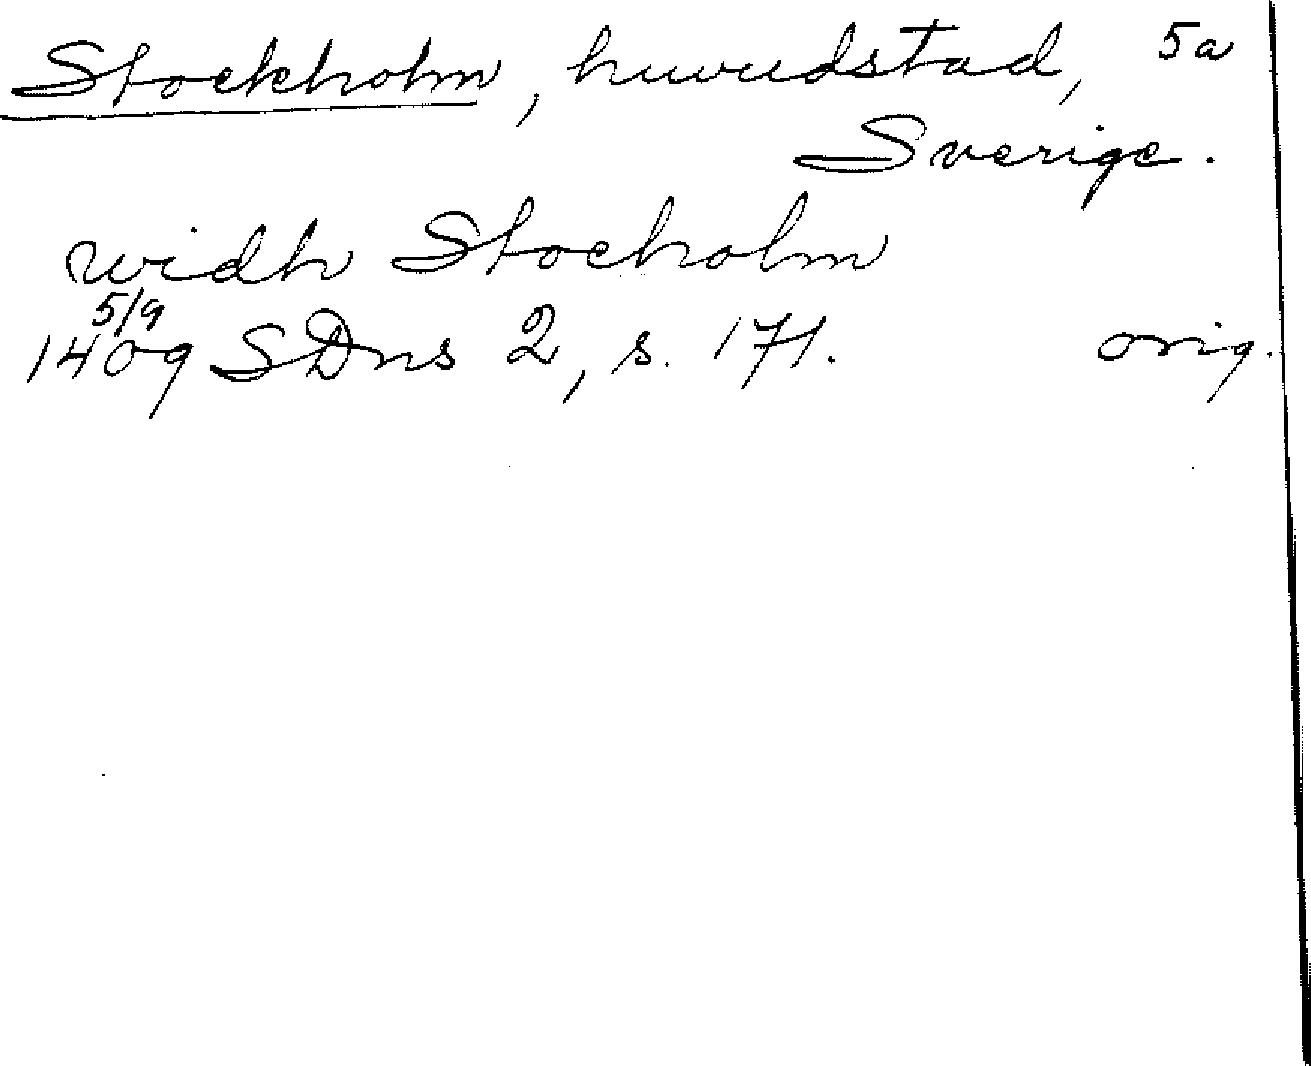 Stockholm, huvudstad, 5a
Sverige.
widh Stocholm
5/9
1409 SDns 2, s. 171. orig.